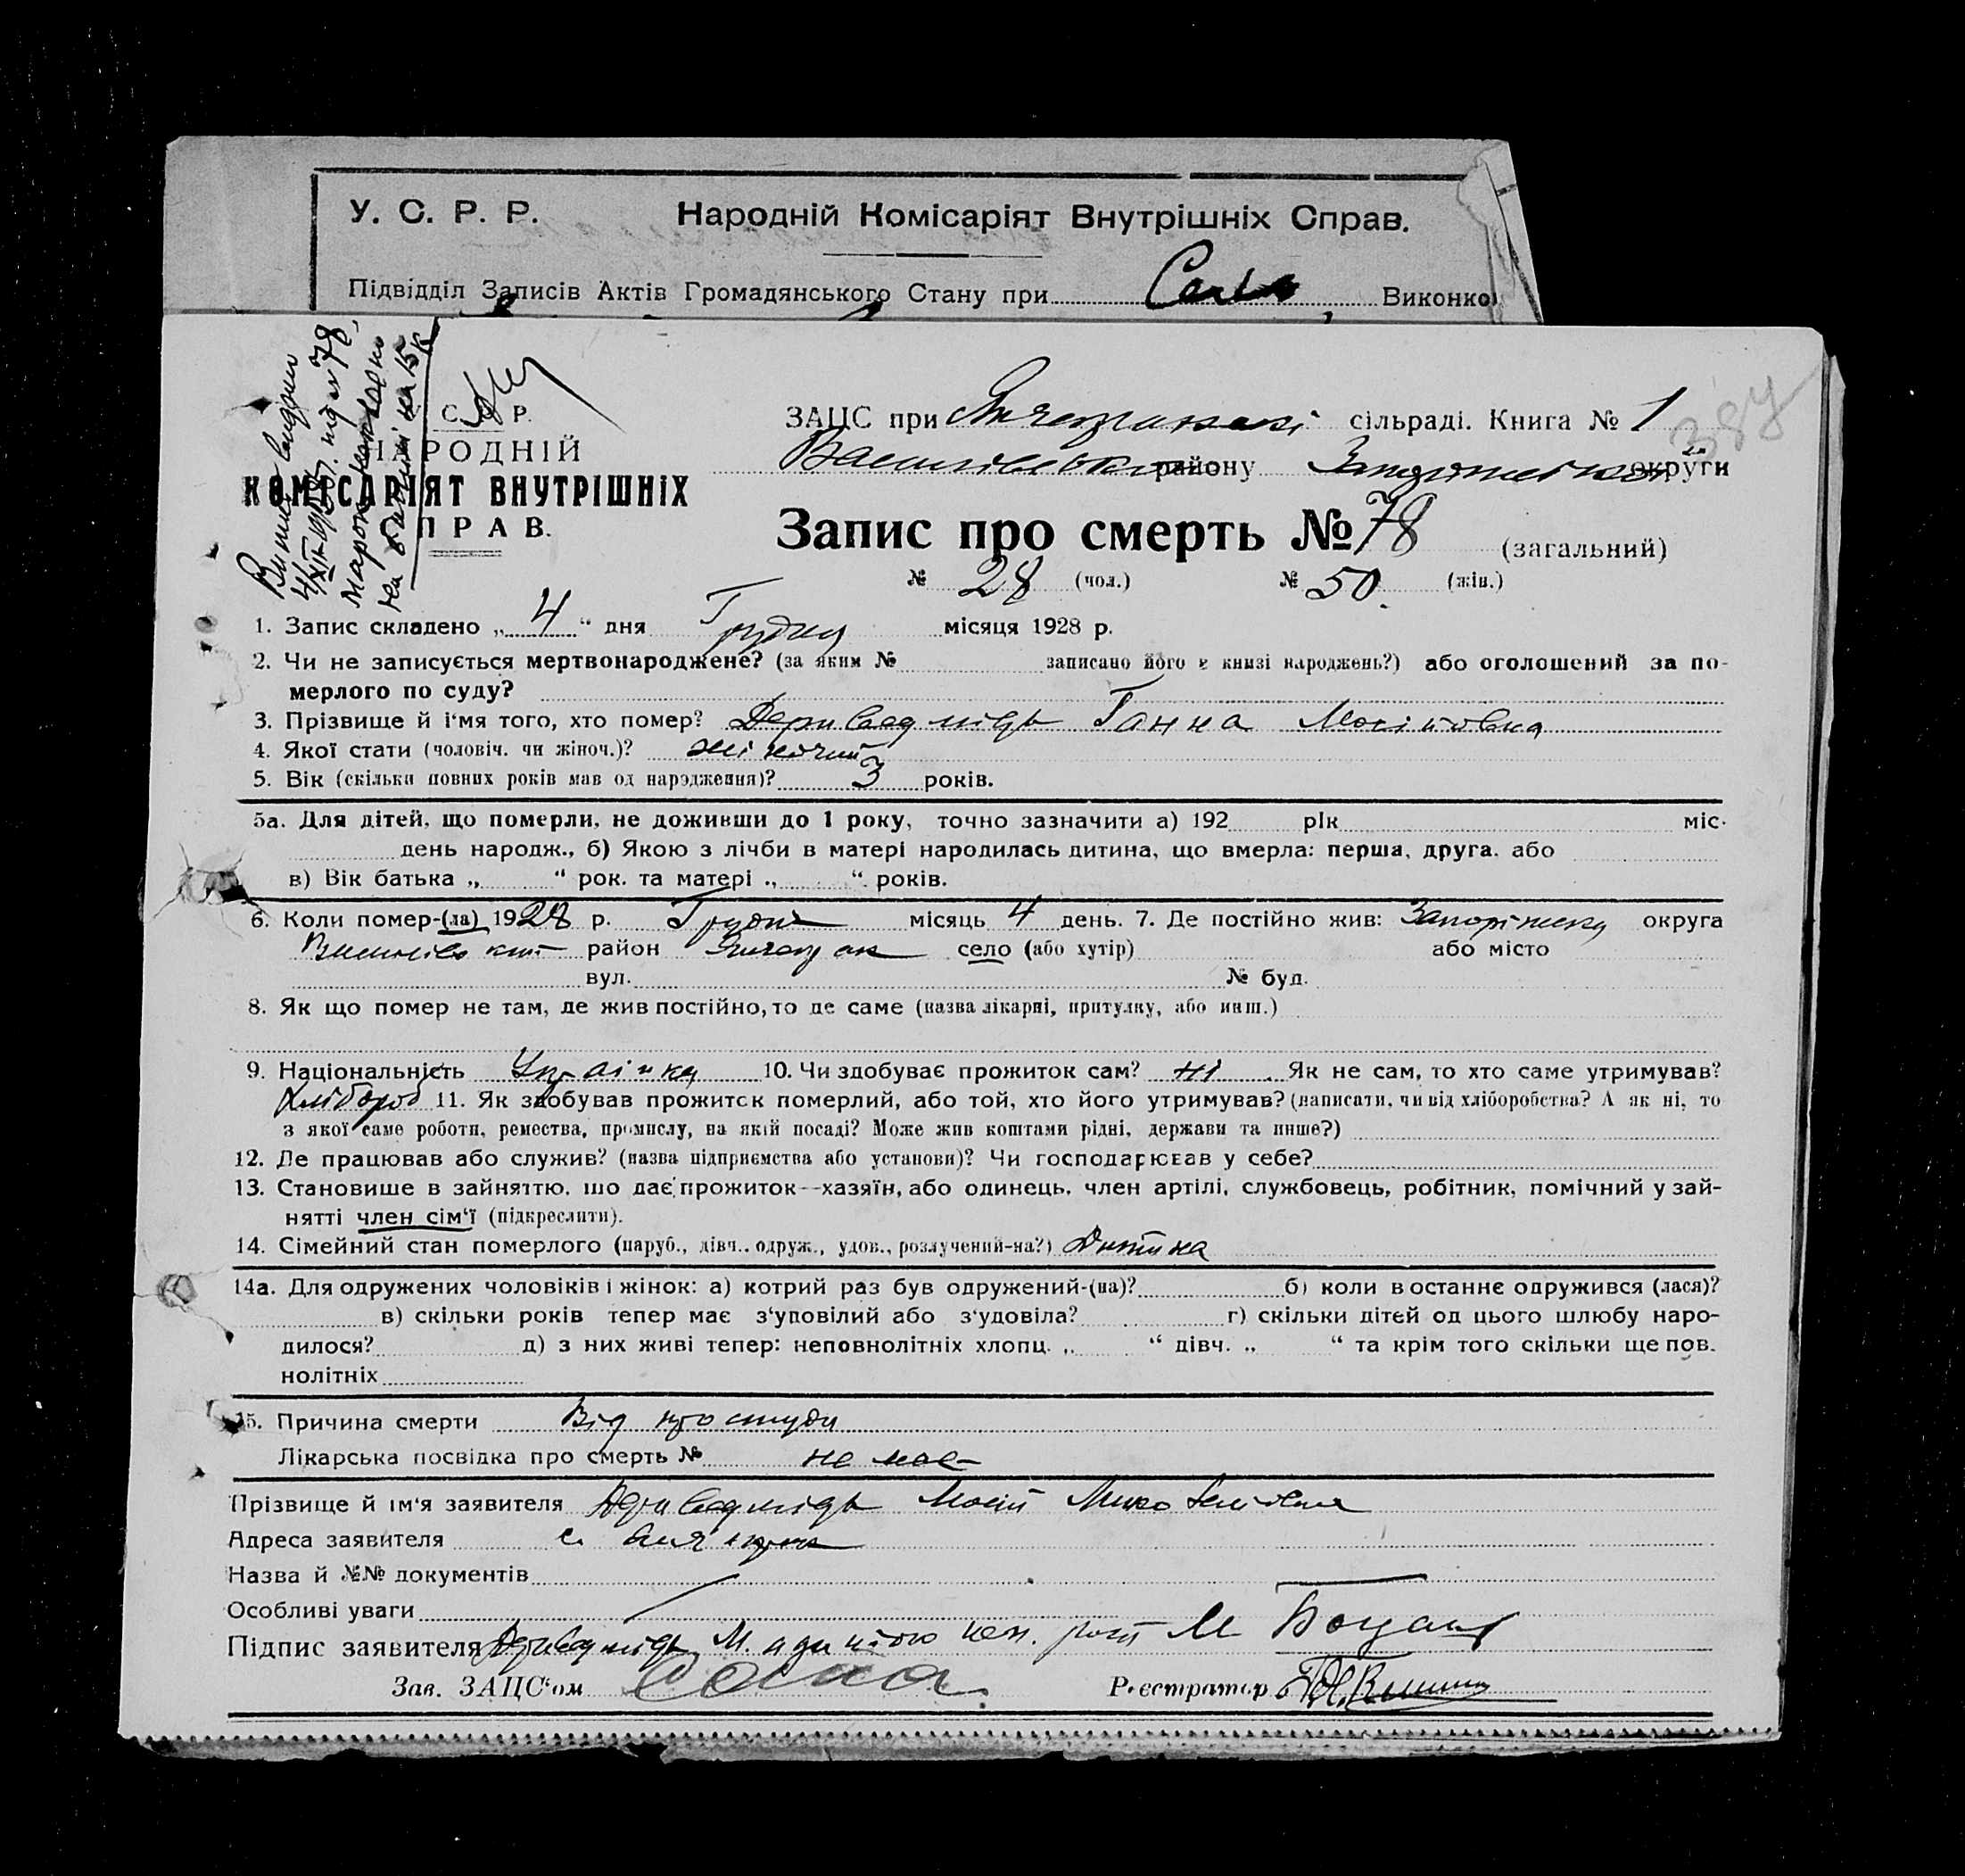 У. С. Р. Р. Народній Комісаріят Внутрішніх Справ.
Підвідділ Записів Актів Громадянського Стану при Виконко
Випис видано
4/XII-1928р. під № 78,
марок наклеєно
на бланкі на 15 к
С. Р.
НАРОДНІЙ
КОМІСАРІЯТ ВНУТРІШНІХ
ПРАВ.
387
ЗАЦС при Янчекрацькі сільраді. Книга № 1
Василівського району Запорізької округи
Запис про смерть № 78 (загальний)
№ 28 (чол.) № 50. (жін.)
1. Запис складено „ 4 “ дня Грудня місяця 1928 р.
2. Чи не записується мертвонароджене? (за яким № записано його в книзі народжень?) або оголошений за по-
мерлого по суду?
3. Прізвище й і‘мя того, хто помер? Дериведмідь Ганна Мосіївна
4. Якої стати (чоловіч. чи жіноч.)? жіночий
5. Вік (скільки повних років мав од народження)? 3 років.
5а. Для дітей, що померли, не доживши до 1 року, точно зазначити а) 192 рік міс.
день народж., б) Якою з лічби в матері народилась дитина, що вмерла: перша, друга. або
в) Вік батька „ “ рок. та матері „ “ років.
6. Коли помер-(ла) 1928 р. Грудня місяць 4 день. 7. Де постійно жив: Запоріжська округа
Василівський район Янчекрак село (або хутір) або місто
вул. № буд.
8. Як що помер не там, де жив постійно, то де саме (назва лікарні, притулку, або инш.)
9. Національність Українка 10. Чи здобуває прожиток сам? ні . Як не сам, то хто саме утримував?
Хлібороб 11. Як здобував прожиток померлий, або той, хто його утримував? (написати, чи від хліборобства? А як ні, то
з якої саме роботи, ремества, промислу, на якій посаді? Може жив коштами рідні, держави та инше?)
12. Де працював або служив? (назва підприємства або установи)? Чи господарював у себе?
13. Становище в зайняттю, що дає прожиток—хазяїн, або одинець, член артілі, службовець, робітник, помічний у зай-
нятті член сім‘ї (підкреслити).
14. Сімейний стан померлого (паруб., дівч., одруж., удов., розлучений-на?) Дитина
14а. Для одружених чоловіків і жінок: а) котрий раз був одружений-(на)? б) коли востаннє одружився (лася)?
в) скільки років тепер має з‘уповілий або з‘удовіла? г) скільки дітей од цього шлюбу наро-
дилося? д) з них живі тепер: неповнолітніх хлопц. „ “ дівч. „ “ та крім того скільки ще пов.
нолітніх
15. Причина смерти Від простуди
Лікарська посвідка про смерть № не має
Прізвище й ім‘я заявителя Дериведмідь Мосій Миколайович
Адреса заявителя с. Янчекрак
Назва й №№ документів
Особливі уваги
Підпис заявителя Дериведмідь М. а за нього нен. рост М Боцан
Зав. ЗАЦС‘ом
Реєстратор